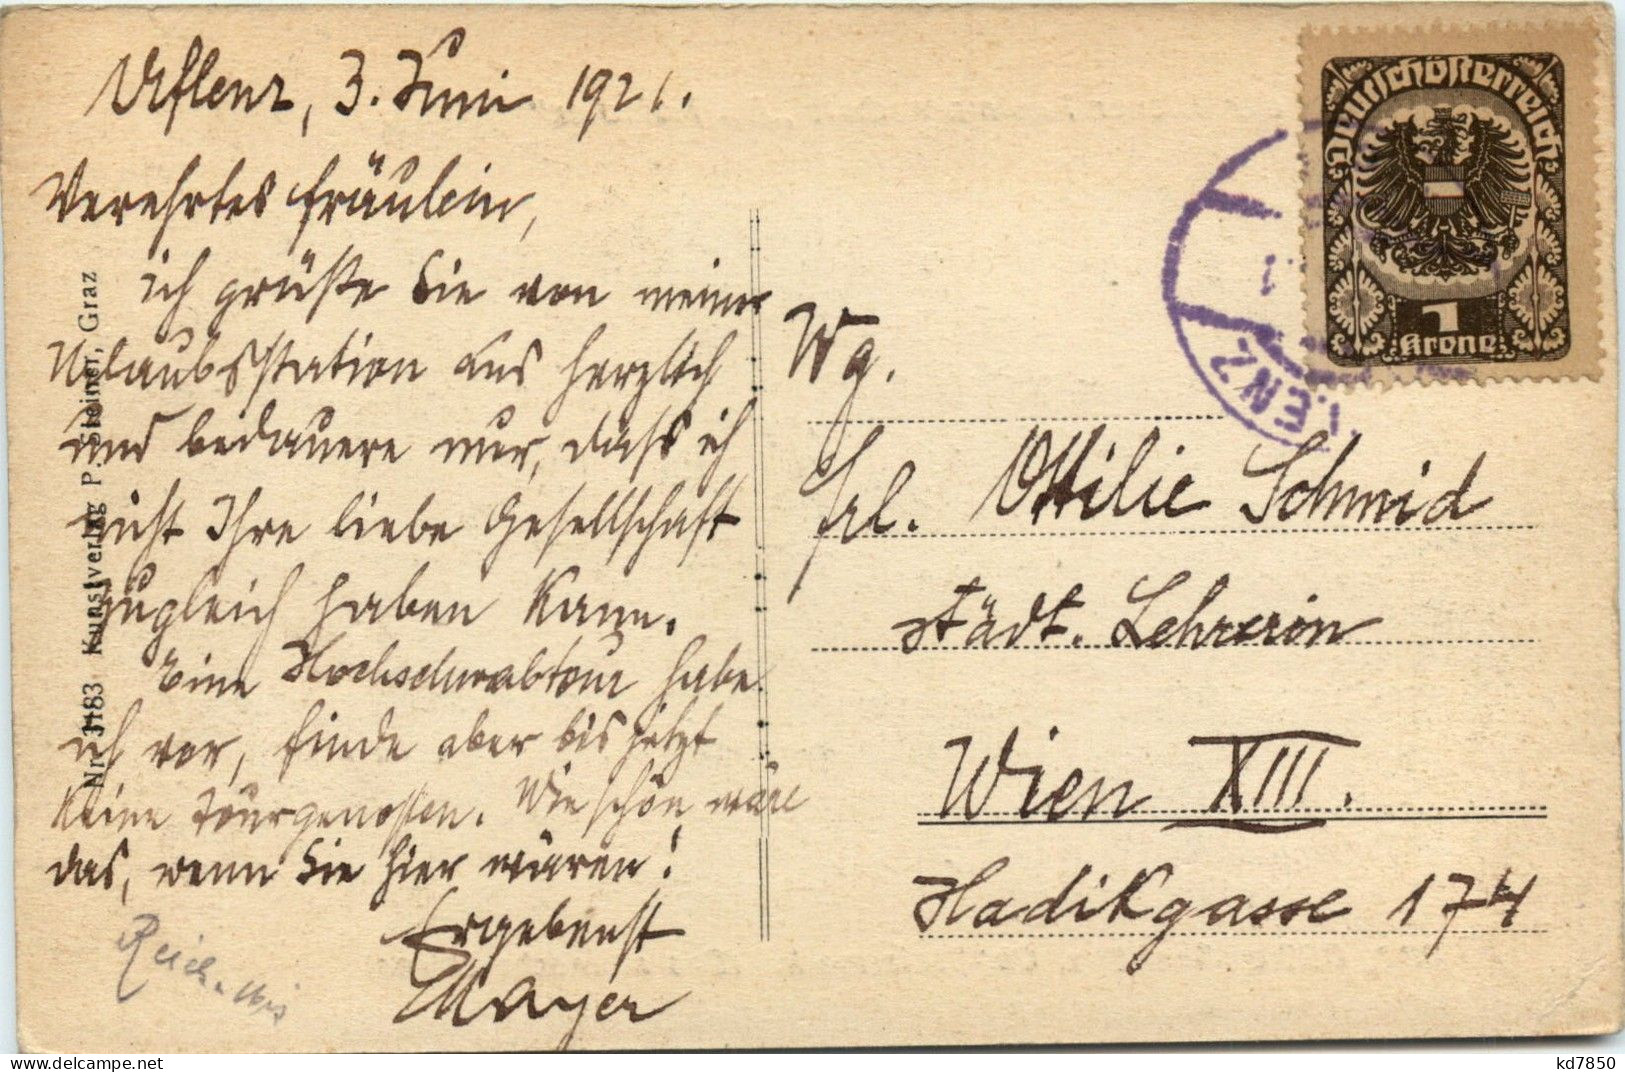 Aflenz, 3. Juni 1921.
Verehrtes Fräulein,
ich grüße Sie von meiner
Urlaubsstation aus herzlich
und bedauere nur, dass ich
nicht Ihre liebe Gesellschaft
zugleich haben kann.
Eine Hochschwabtour habe
ich vor, finde aber bis jetzt
keine Tourgenossen. Wie schön wäre
das, wenn Sie hier wären!
Ergebenst
Mayer
Nr. 3183 Kunstverlag P. Steiner, Graz
Deutschösterreich
1
Krone
LENZ
Wg.
Frl. Ottilie Schmid
städt. Lehrerin
Wien XIII.
Hadikgasse 174
kd7850